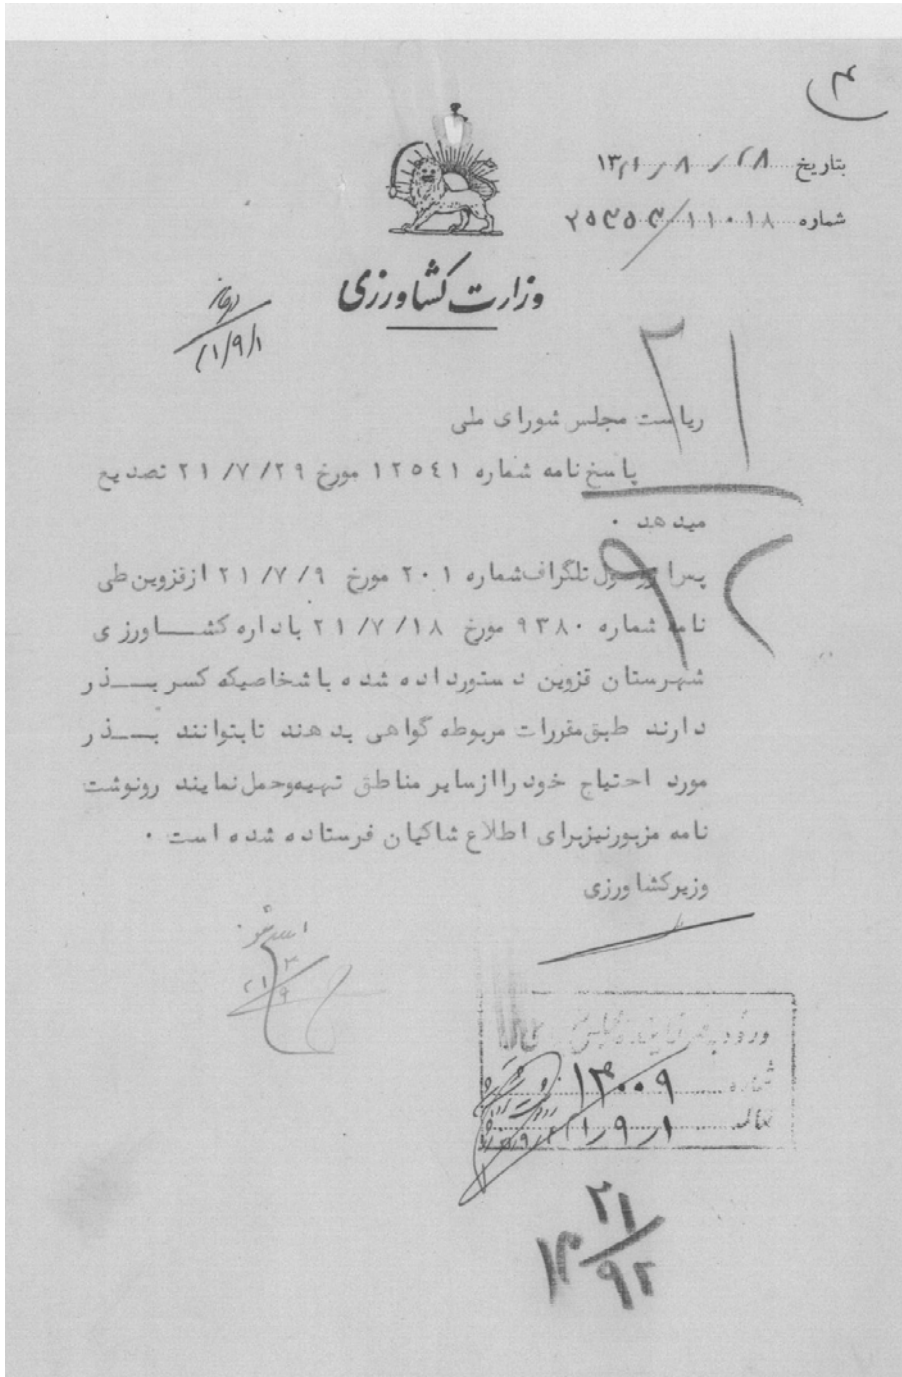 ۴
بتاریخ ۲۸ ر ۸ ر ۱۳۲۱
شماره ۱۱۰۱۸/
وزارت کشاورزی
۲۱/۹/۱
۲۱
ریاست مجلس شورای ملی
پاسخ نامه شماره ۱۲۵٤۱ مورخ ۲۱/۷/۲۹ تصدیع
میدهد ۰
۹۲
پس از وصول تلگراف شماره ۲۰۱ مورخ ۲۱/۷/۹ از قزوین طی
نامه شماره ۹۳۸۰ مورخ ۲۱/۷/۱۸ باداره کشاورزی
شهرستان قزوین دستور داده شده باشخاصیکه کسر بذر
دارند طبق مقررات مربوطه گواهی بدهند تا بتوانند بذر
مورد احتیاج خود را از سایر مناطق تهیه وحمل نمایند رونوشت
نامه مزبور نیز برای اطلاع شاکیان فرستاده شده است ۰
وزیر کشاورزی
شماره ۱۳۰۰۹
۲۱ ر ۹ ر ۱
۲۱
۹۲